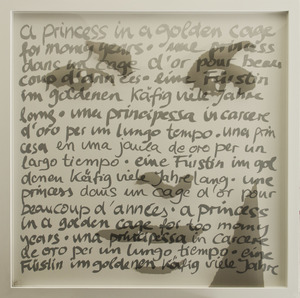 a princess in a golden cage
for many years · une princess
dans un cage d'or pour beau
coup d'années · eine Fürstin
im goldenen Käfig viele Jahre
long · una principessa in carcere
d'oro per un lungo tempo · una prin
cesa en una jaula de oro per un
largo tiempo · eine Fürstin im gol
denen Käfig viele Jahre lang · une
princess dans un cage d'or pour
beaucoup d'années · a princess
in a golden cage for too many
years · una principessa in carcere
de oro per un lungo tiempo · eine
Fürstin im goldenen Käfig viele Jahre